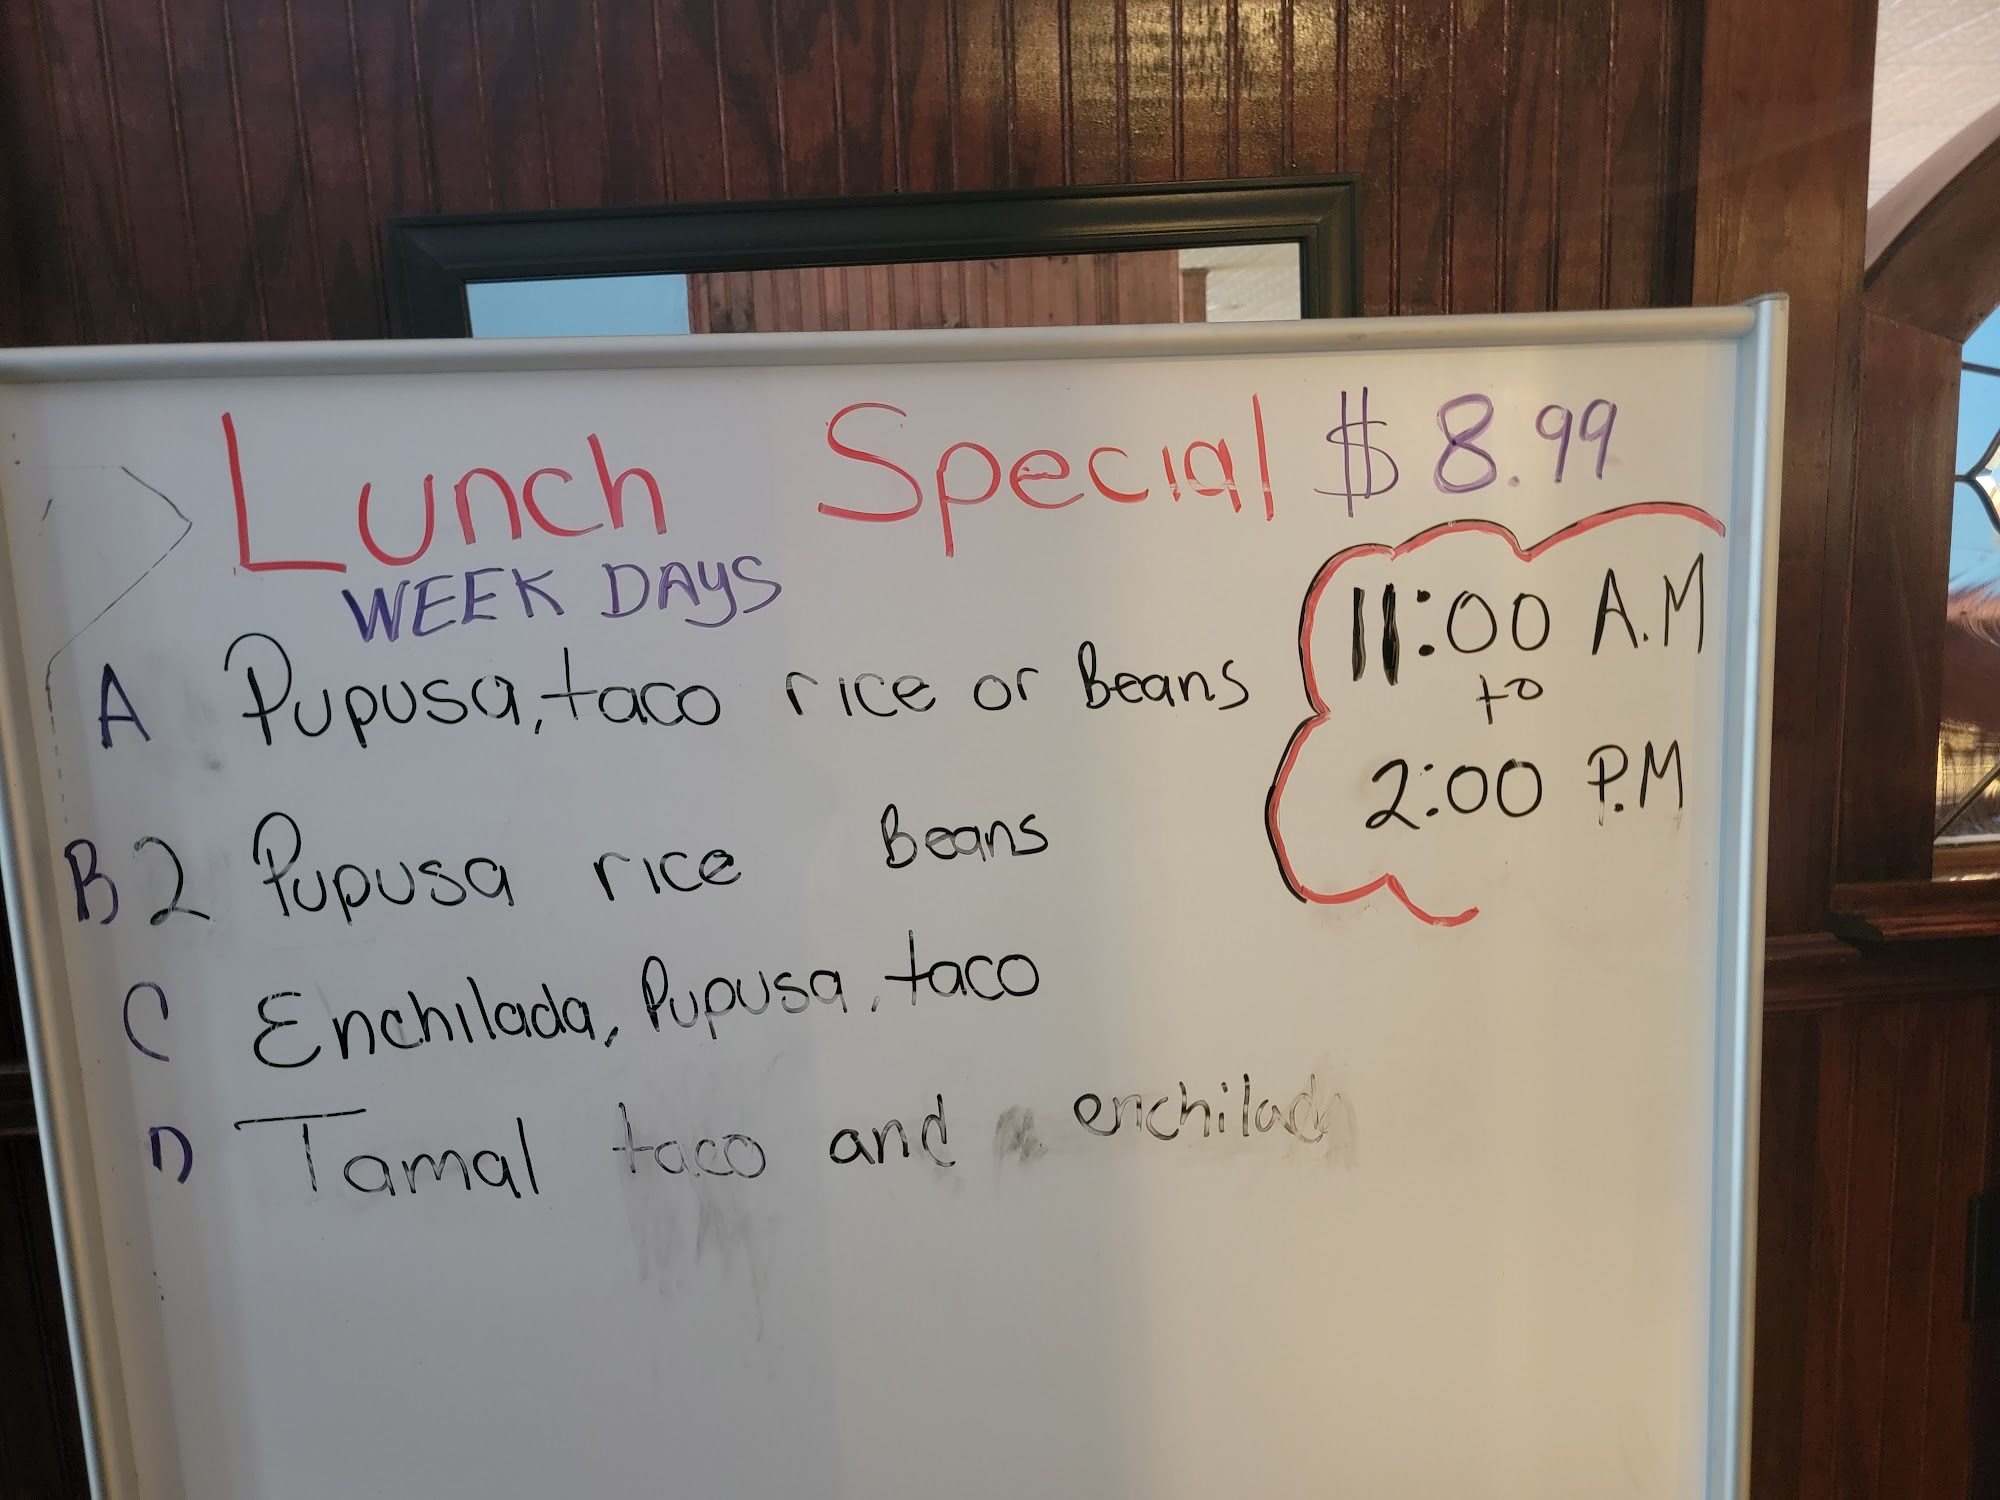 Lunch Special $ 8.99
WEEK DAYS
11:00 A.M
to
2:00 P.M
A Pupusa, taco rice or Beans
B 2 Pupusa rice Beans
C Enchilada, Pupusa, taco
D Tamal taco and enchilada